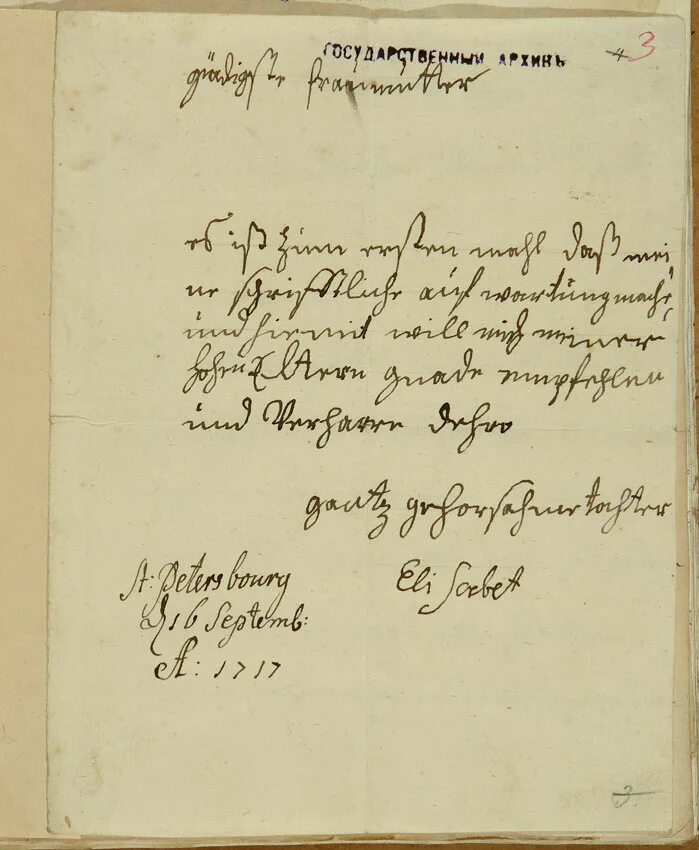 ГОСУДАРСТВЕННЫЙ АРХИВЪ
4 3
gnädigste fraümütter
es ist zum ersten mahl daß mei
ne schrifftliche auf wartüng mache,
ünd hiemit will mich meiner
hohen Eltern gnade empfehlen
ünd Verharre dehro
gantz gehorsahme tochter
St: Petersbourg
d 16 Septemb:
A: 1717
Eli Saebet
3